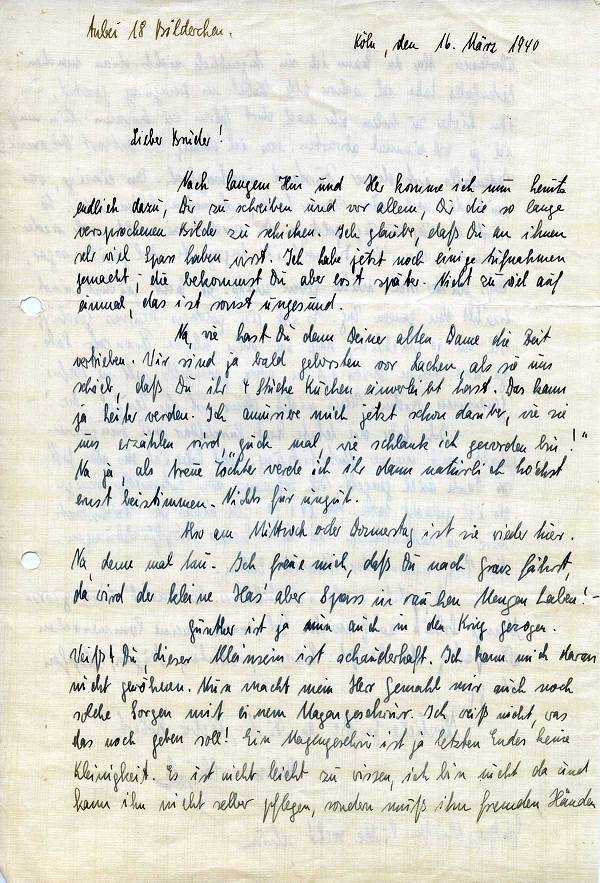 Anbei 18 Bilderchen.
Köln, den 16. März 1940
Lieber Bruder!
Nach langem Hin und Her komme ich nun heute
endlich dazu, Dir zu schreiben und vor allem, Dir die so lange
versprochenen Bilder zu schicken. Ich glaube, daß Du an ihnen
sehr viel Spass haben wirst. Ich habe jetzt noch einige Aufnahmen
gemacht; die bekommst Du aber erst später. Nicht zu viel auf
einmal, das ist sonst ungesund.
Na, wie hast Du denn Deiner alten Dame die Zeit
vertrieben. Wir sind ja bald geborsten vor Lachen, als sie uns
schrieb, daß Du ihr 4 Stücke Kuchen einverleibt hast. Das kann
ja heiter werden. Ich amüsiere mich jetzt schon darüber, wie sie
uns erzählen wird, "guck mal, wie schlank ich geworden bin!"
Na ja, als treue Tochter werde ich ihr dann natürlich höchst
ernst beistimmen. Nichts für ungut.
Also am Mittwoch oder Donnerstag ist sie wieder hier.
Na, denne mal tau. Ich freue mich, daß Du nach Graz fährst,
da wird der kleine Has' aber Spass in rauhen Mengen haben! -
Günther ist ja nun auch in den Krieg gezogen.
Weißt Du, dieser Alleinsein ist schauderhaft. Ich kann mich daran
nicht gewöhnen. Nun macht mein Herr Gemahl mir auch noch
solche Sorgen mit einem Magengeschwür. Ich weiß nicht, was
das noch geben soll! Ein Magengeschwür ist ja letzten Endes keine
Kleinigkeit. Es ist nicht leicht zu wissen, ich bin nicht da und
kann ihn nicht selber pflegen, sondern muß ihn fremden Händen